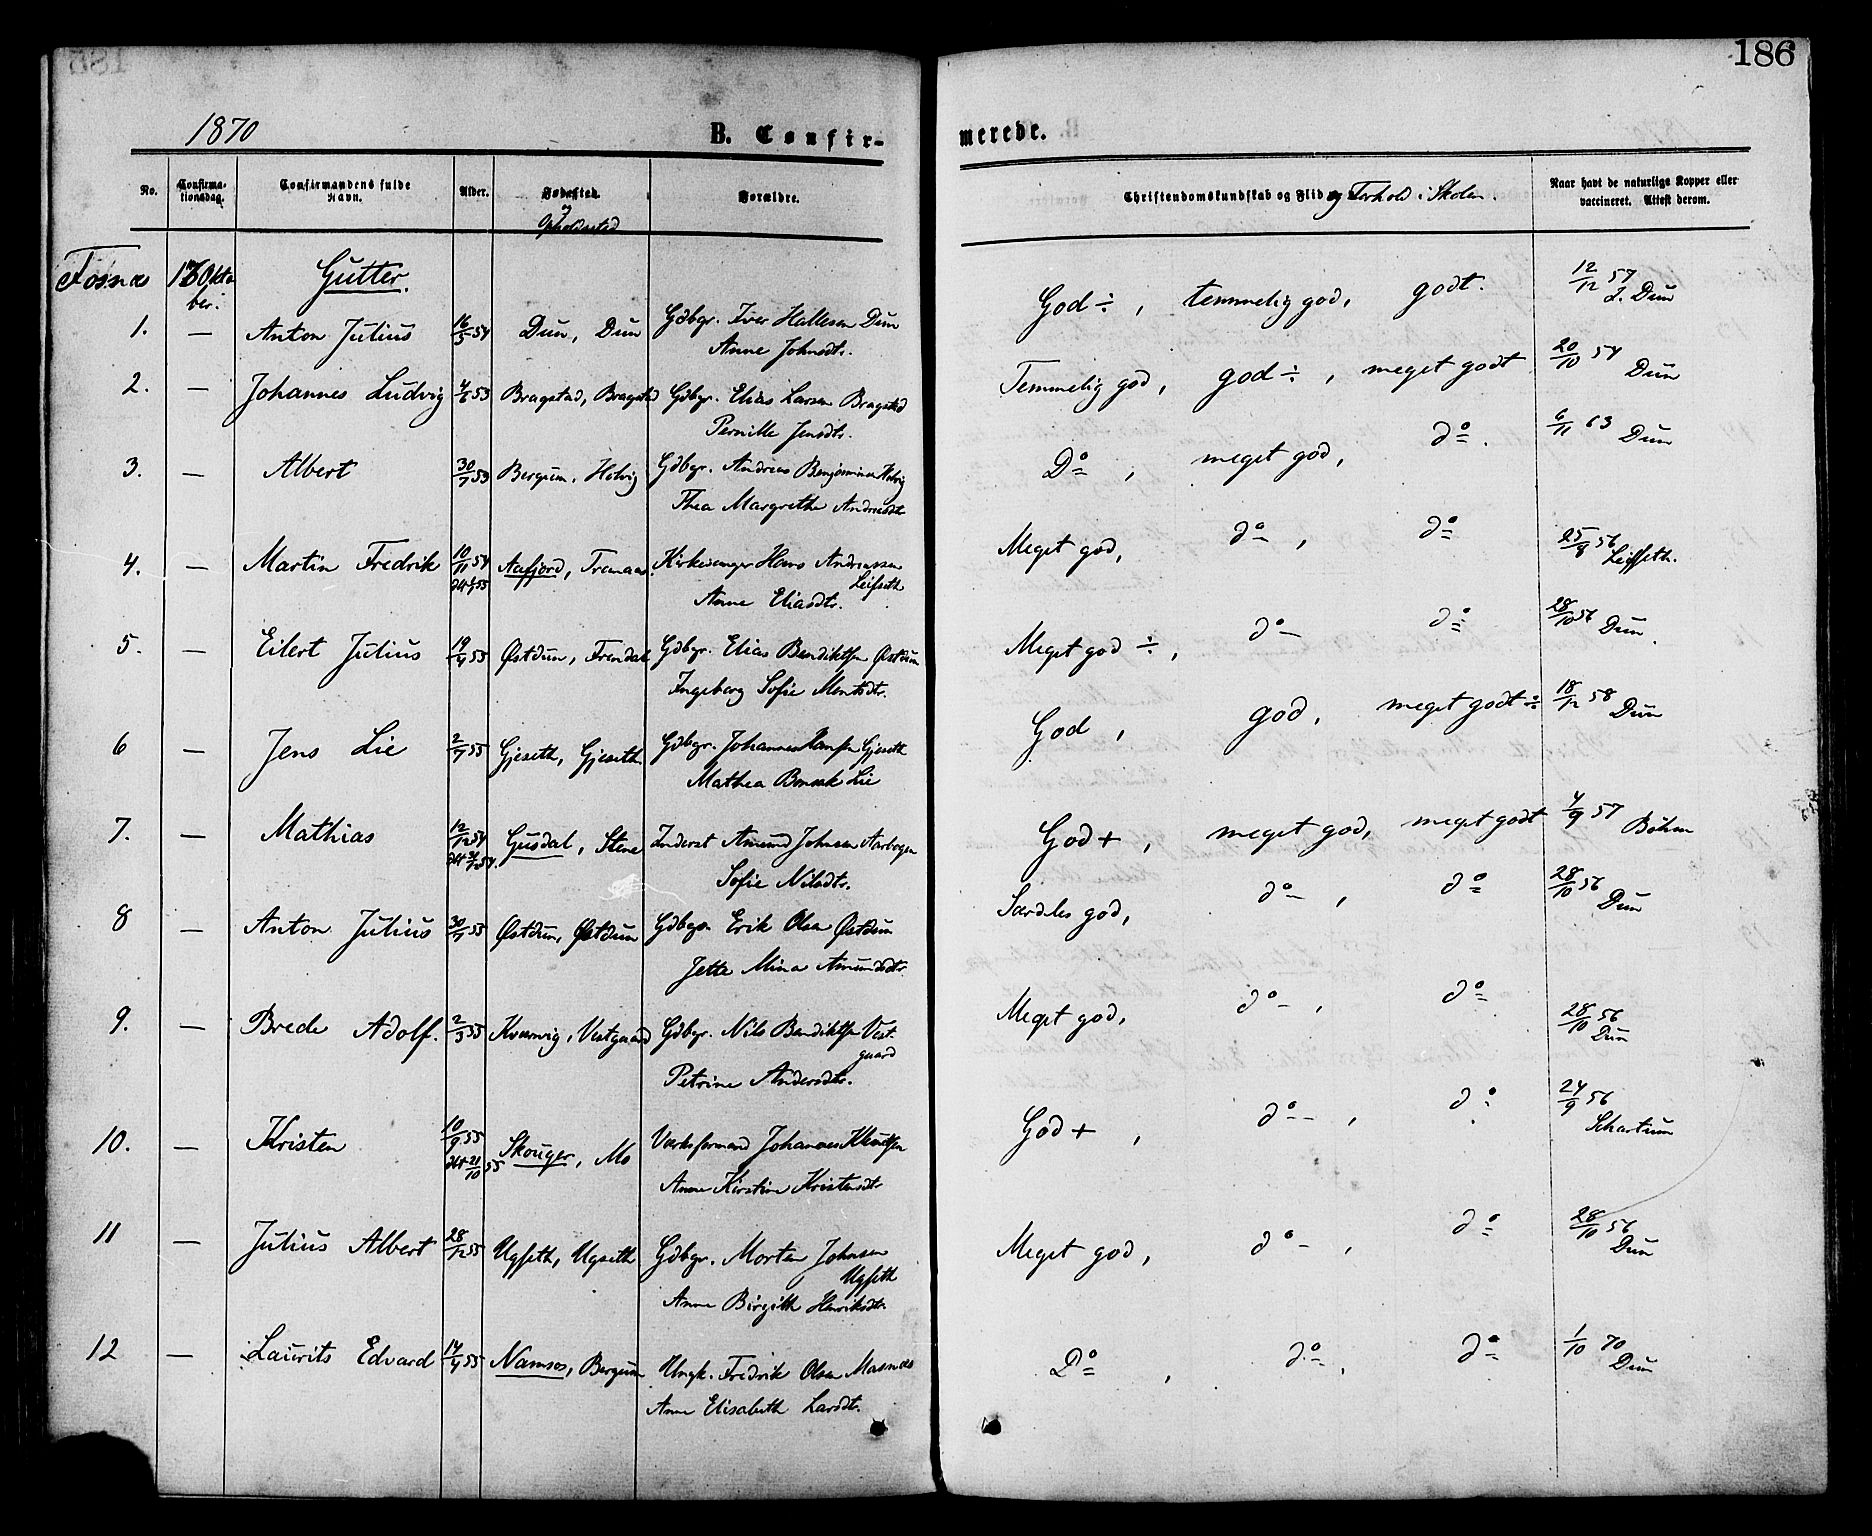 186
1870
B. Confirmerede.
No.
Confirmationsdag.
Confirmandens fulde Navn.
Alder.
Fødested. og Opholdssted
Forældre.
Christendomskundskab og Flid og Forhold i Skolen.
Naar havt de naturlige Kopper eller vaccineret. Attest derom.
Fosnæs Oktober. Gutter.
1. — Anton Julius 16/5 54 Dun, Dun Gdbgr. Iver Hallesen Dun
Anne Johnsdtr.
God ÷, temmelig god, godt. 12/12 57 Dun
2. — Johannes Ludvig 4/6 53 Bragstad, Bragstad Gdbgr. Elias Larsen Bragstad
Pernille Jensdtr.
Temmelig god, god ÷, meget godt 20/10 54 Dun
3. — Albert 30/7 53 Bergum, Holvig Gdbgr. Andreas Benjaminsen Holvig
Thea Margrethe Andreasdtr
Do, meget god, do. 6/11 63 Dun
4. — Martin Fredrik 10/11 54 Aafjord, Kirkesanger Hans Andreassen Leifseth
Anne Eliasdtr.
Meget god, do, do 25/8 56 Leifseth.
5. — Eilert Julius 19/4 55 Østdun, Frendal Gdbgr. Elias Bendiktsen Østdun
Ingeborg Sofie Mentsdtr.
Meget god ÷, do do 28/10 56 Dun.
6 — Jens Lie 2/7 55 Gjeseth, Gjeseth Gdbgr. Johannes Hansen Gjeseth
Mathea Lie
God, god, meget godt ÷ 18/12 58 Dun
7. — Mathias 12/12 54 Gusdal, Stene Inderst Amund Johnsen Aarbogen
Sofie Nilsdtr.
God +, meget god, meget godt 4/9 57 Bøhm
8 — Anton Julius 30/7 55 Østdun, Østdun Gdbgr. Erik Olsen Østdun
Jette Mina Amundsdtr.
Særdeles god, do, do 28/10 56 Dun
9. — Brede Adolf. 2/3 55 Kvarvig, Vestgaard Gdbgr. Nils Bendiktsen Vestgaard
Petrine Andersdtr.
Meget god, do, do 28/10 56 Dun
10. — Kristen 10/9 55 21/10 55 Skouger, Mo Værksformand Johannes Knudsen
Anne Kirstine Kristensdtr
God +, do, do 24/9 56 Schartum
11 — Julius Albert 28/12 55 Ugseth, Ugseth Gdbgr. Morten Johnsen Ugseth
Anne Birgith Henriksdtr
Meget god, do, do 28/10 56 Dun
12 — Laurits Edvard 14/4 55 Namsos, Bergum Ungk. Fredrik Olsen Masnes
Anne Elisabeth Larsdtr.
Do, do, do 1/10 70 Dun